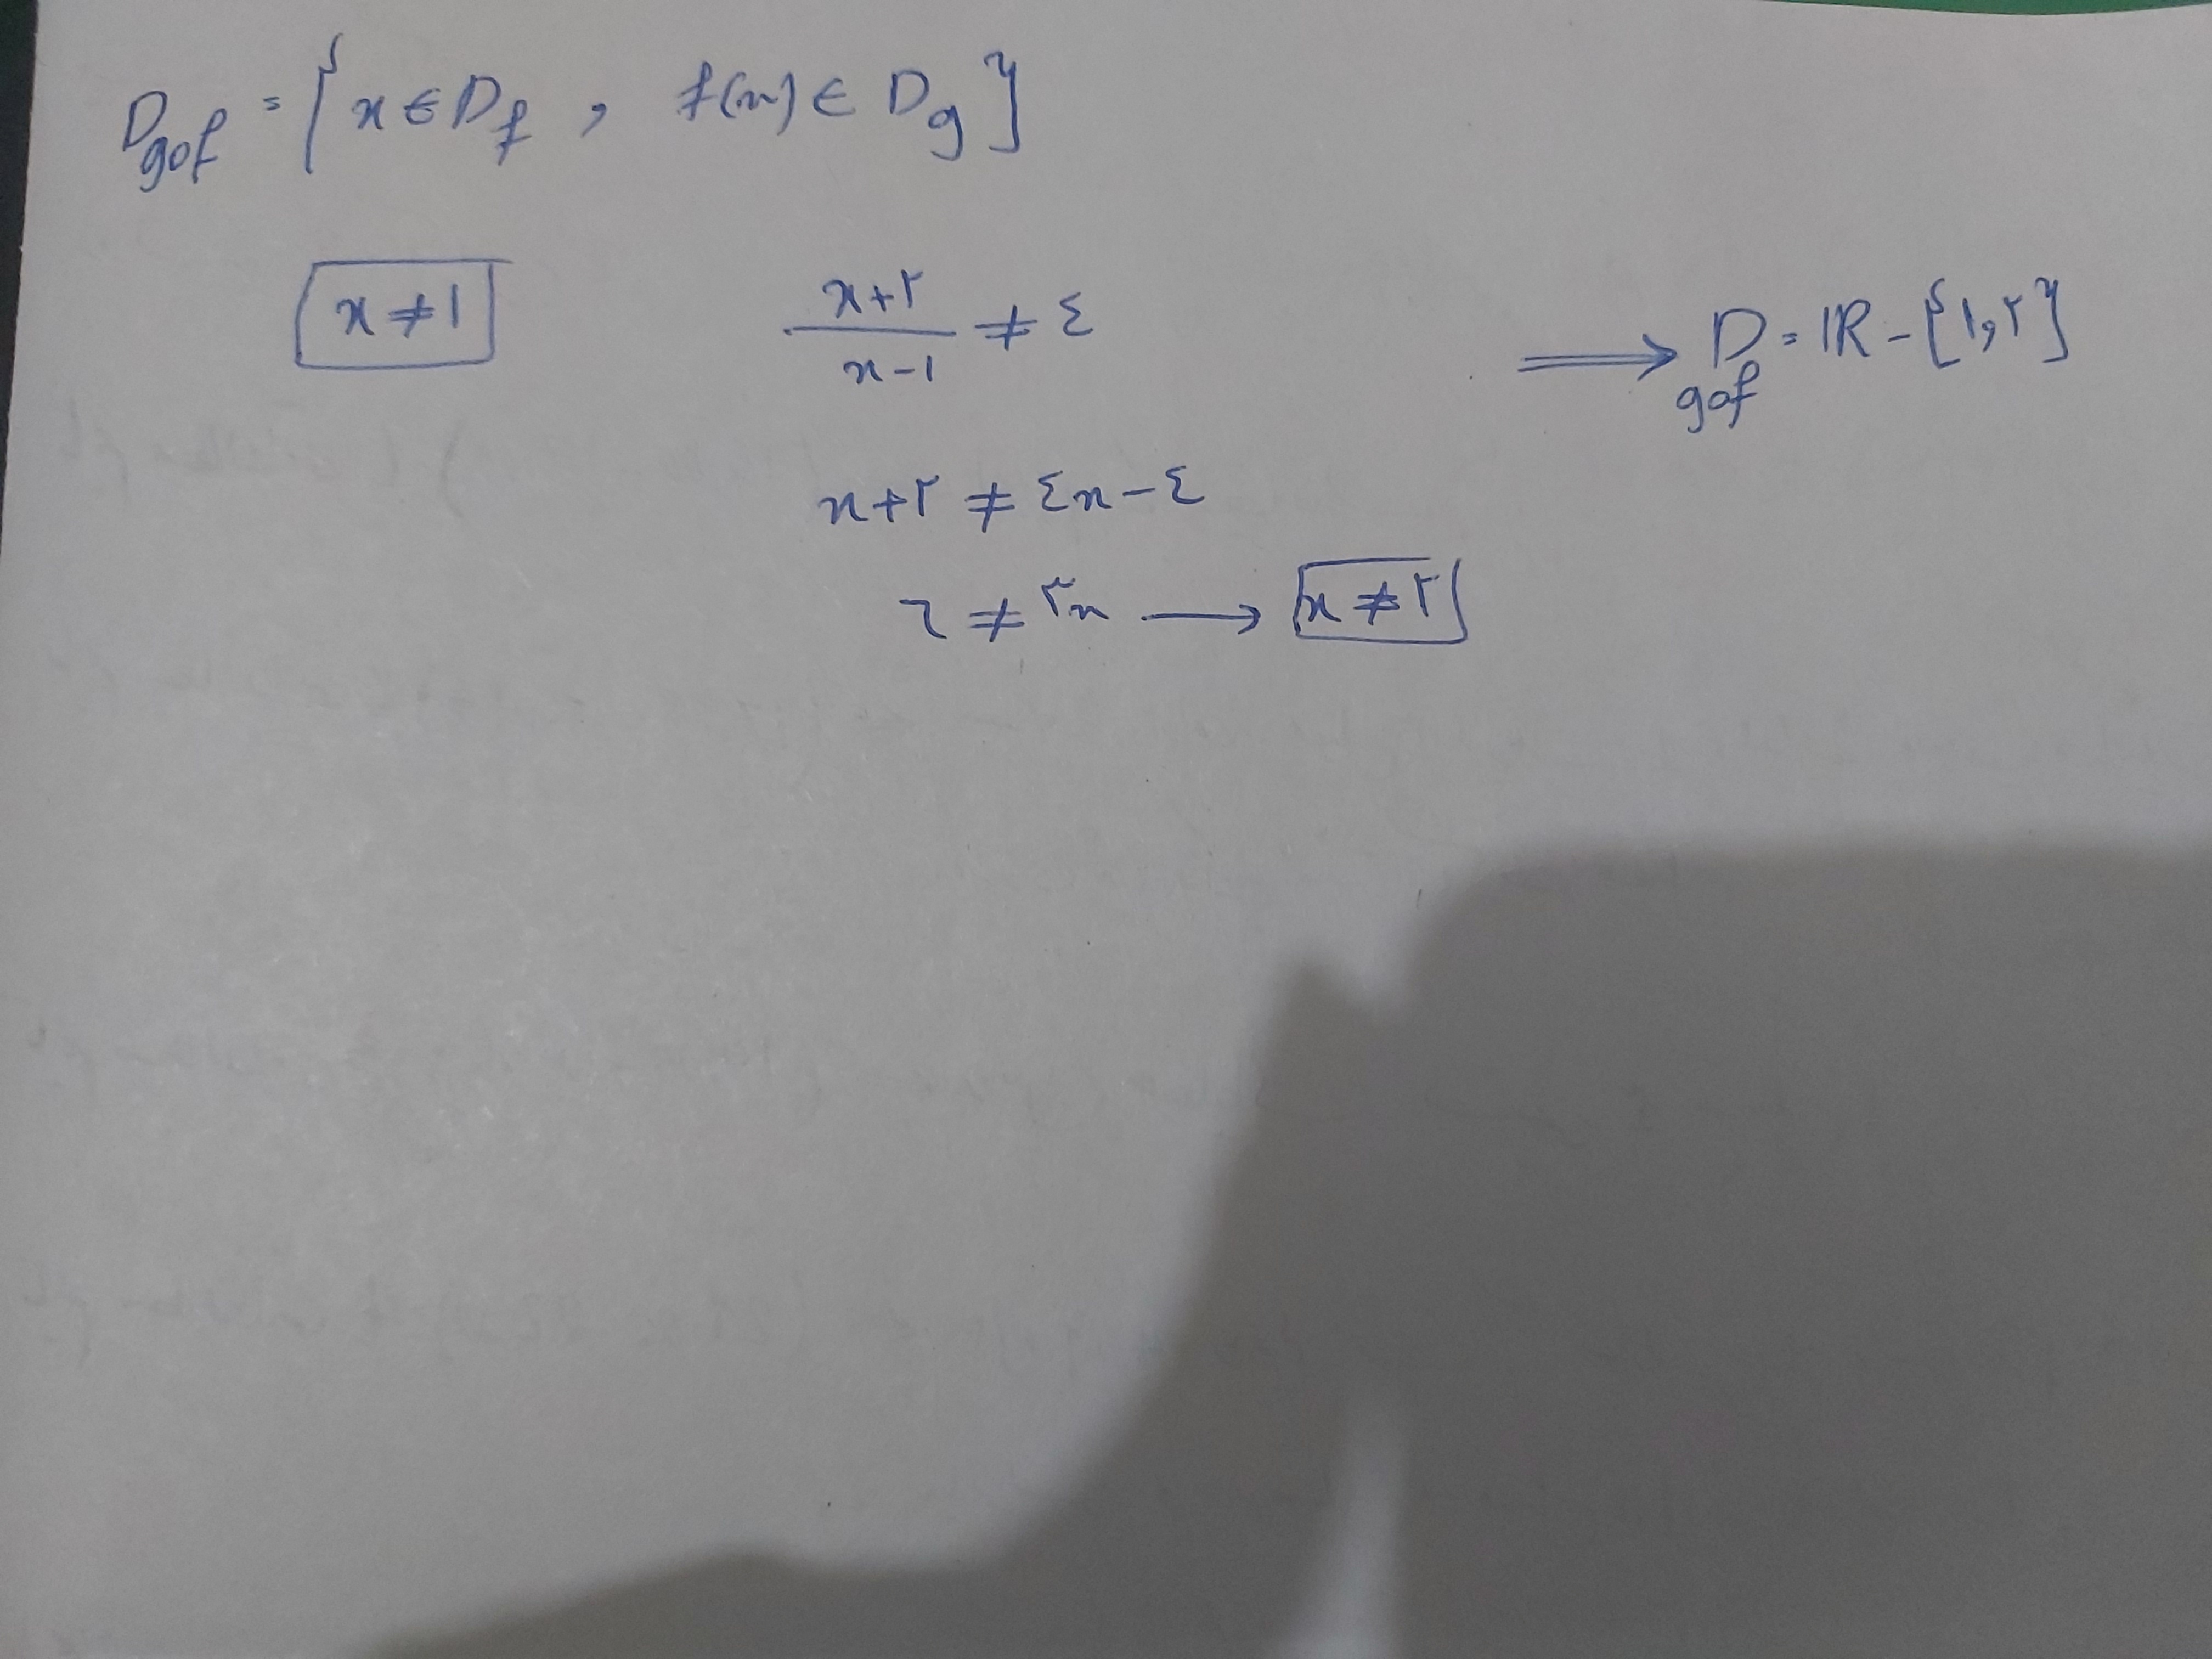 D_gof = { x ∈ D_f , f(x) ∈ D_g }
x ≠ ۱
(x+۲)/(x-۱) ≠ ٤
⟹ D_gof = ℝ - {۱,۲}
x+۲ ≠ ٤x-٤
۶ ≠ ۳x → x ≠ ۲